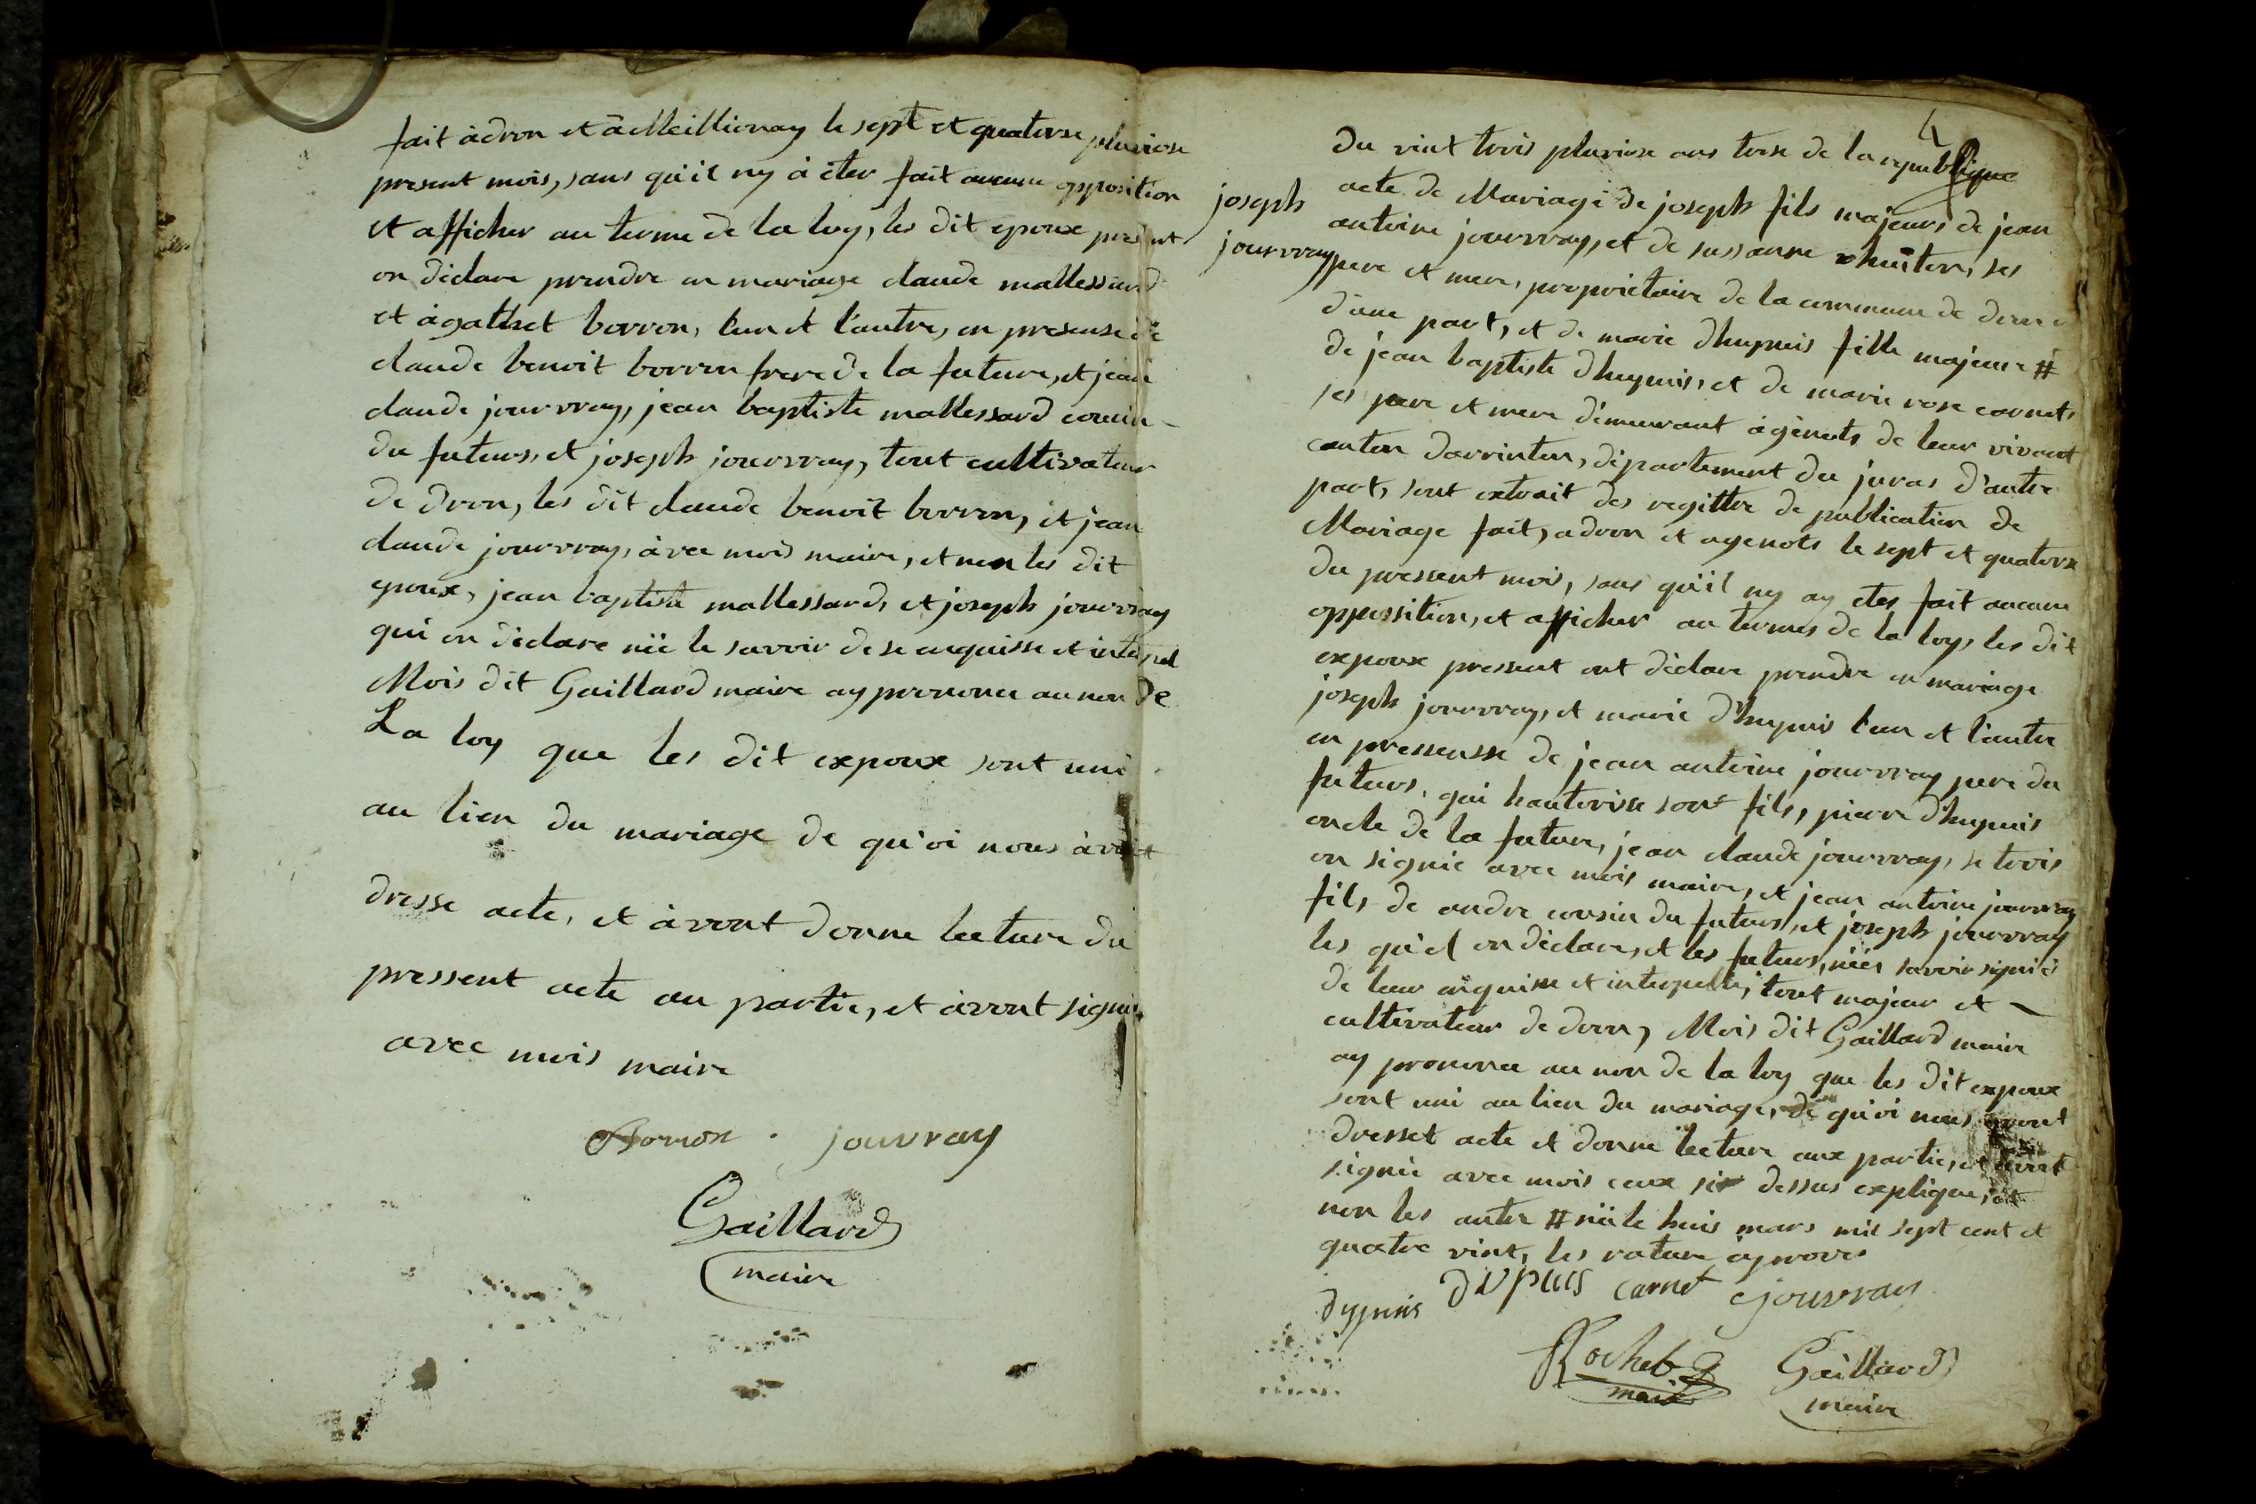 fait à dron et à Meillionay le sept et quatorse pluviose
present mois, sans qu'il ny à êter fait aucune opposition
et afficher au terme de la loy, les dit epoux present
on déclare prendre en mariage claude mallessard
et àgathet borron, l'un et l'autre, en presense de
claude benoit borron frere de la future, et jean
claude jourvray, jean baptiste mallessard cousin
du futeurs, et joseph jourvray, tout cultivateur
de dron, les dit claude benoit borron, et jean
claude jourvray, àvec mois maire, et non les dit
epoux, jean baptiste mallessard, et joseph jourvray
qui on déclare nïe le savoir de se enquisse et interpel
Mois dit Gaillard maire ay prononcu au nom de
La loy que les dit expoux sont uni
au lien du mariage de qu'oi nous àvont
dresse acte, et àvont donne lecture du
pressent acte au partie, et àvont signie
avec mois maire
Borron . jouvray
Gaillard
maire
4
du vint trois pluviose ans terse de la republique
joseph
jourvray
acte de Mariage de joseph fils majeurs de jean
antoine jourvray, et de sussanne huiton, ses
pere et mere, propriétaire de la commune de dron
d'une part, et de marie dhupuis fille majeure #
de jean baptiste dhupuis, et de marie rose carnet,
ses pere et mere démeurant àgènots de leur vivant
canton darrinton, département du juras d'autre
part, sont extrait des regittre de publication de
Mariage fait, adron et agenots le sept et quatorse
du pressent mois, sans qu'il ny ay etes fait aucune
oppossition, et afficher au termes de la loy, les dit
expoux pressent ont déclare prendre en mariage
joseph jourvray, et marie d'hupuis l'un et l'autre
en pressensse de jean antoine jourvray pere du
futeurs, qui hautorise sont fils, pierre d'hupuis
oncle de la future, jean claude jourvray, se trois
on signie avec mois maire, et jean antoine jourvray
fils de andre cousin du futeurs, et joseph jourvray
les qu'el on déclare, et les futeurs, nïes savoir signié
de leur enquisse et interpelle, tout majeur et
cultivateur de dron, Mois dit Gaillard maire
ay prononcu au non de la loy que les dit expoux
sont uni au lien du mariage, de qu'oi nous avont
dresset acte et donne lecture aux partie, et àvont
signie avec mois ceux si dessus explique, et
non les autre # nïe le huis mars mil sept cent et
quatre vint, les rature àprover
dypuis dupuis carnet jouvray
Rochet Gaillard
maire maire